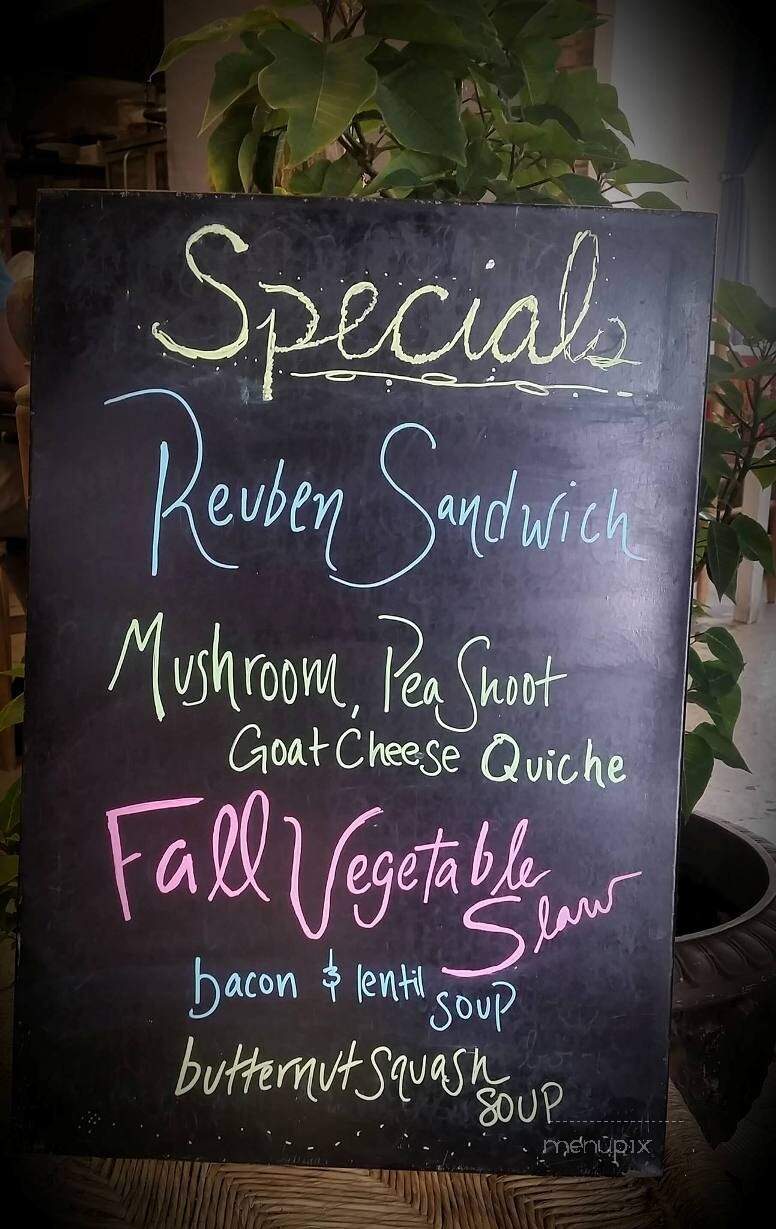 Specials
Reuben Sandwich
Mushroom, Pea Shoot
Goat Cheese Quiche
Fall Vegetable
Slaw
bacon & lentil
soup
butternut squash
soup
menupix